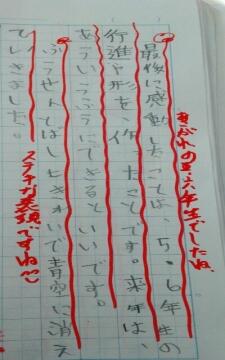 あこがれの五六年生でしたね。
最後に感動したことは、5・6年生の
行進や形を、作ったことです。来年は、
あういうふうにできるといいです。
ふうせんとばしもきれいで青空に消え
ていきました。
ステキな表現ですね